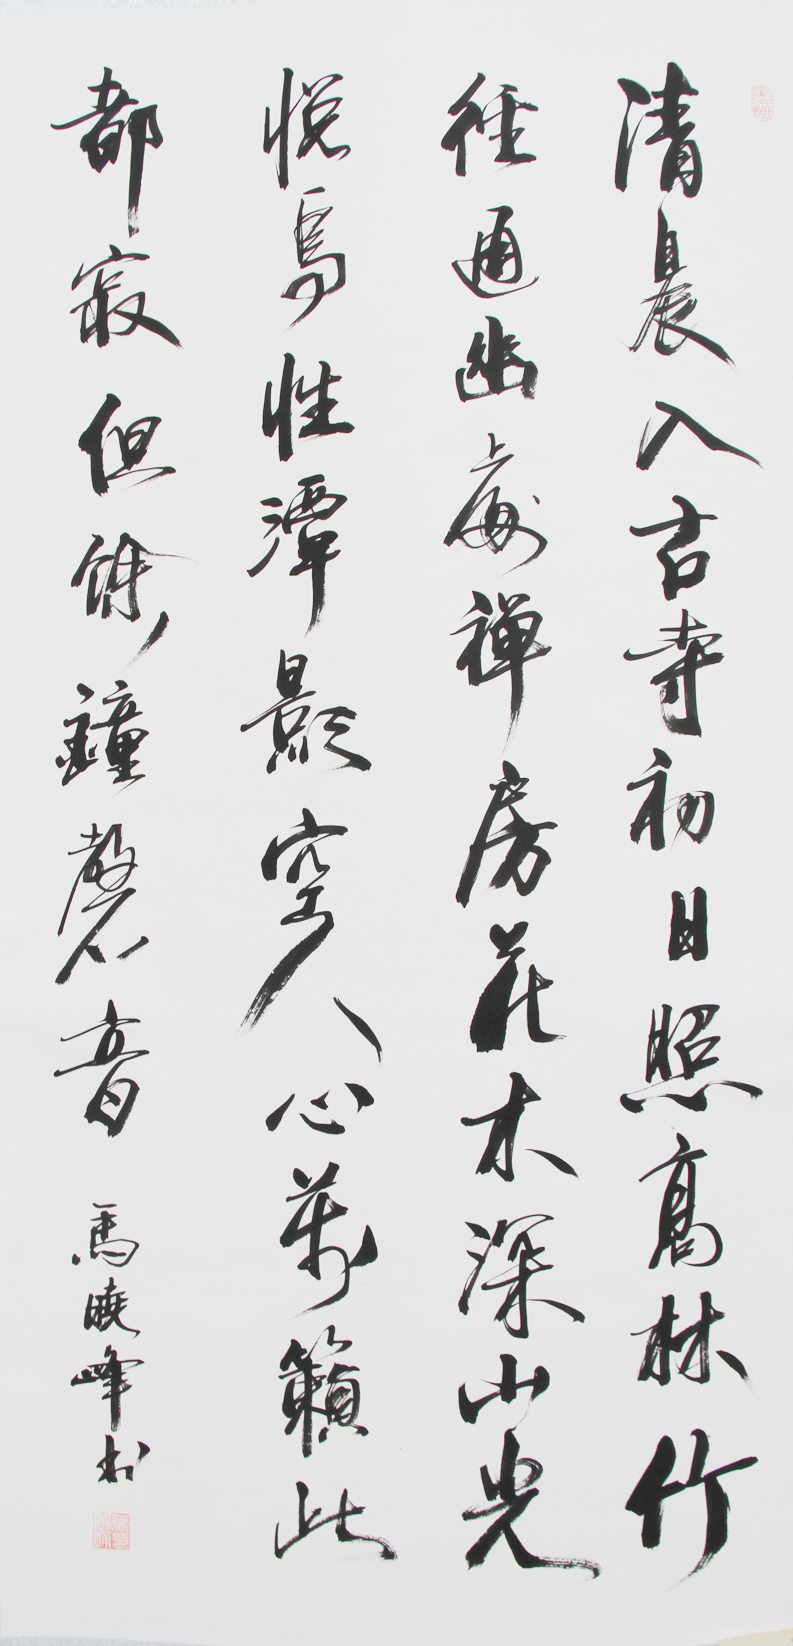 清晨入古寺初日照高林竹
徑通幽處禪房花木深山光
悅鳥性潭影空人心萬籟此
都寂但餘鐘磬音
馬曉峰书